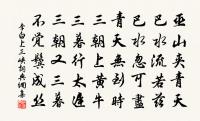 巫山夾青天
巴水流若茲
巴水忽可盡
青天無到時
三朝上黃牛
三暮行太遲
三朝又三暮
不覺鬢成絲
李白上三峽詞典網